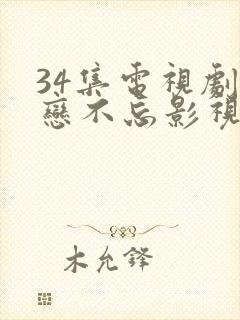 34集電視劇
戀不忘影視
木允鋒